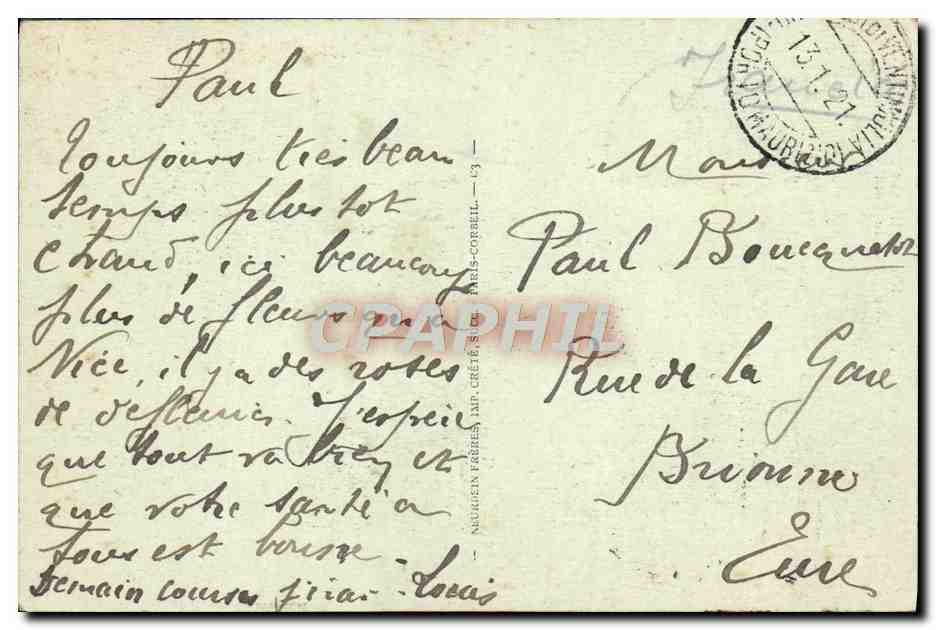 Paul
Toujours très beau
temps plutot
chaud, ici beaucoup
plus de fleurs qu'a
Nice, il y a des roses
de defleuries. J'espère
que tout va bien et
que votre santé a
tous est bonne -
Demain courses j'irai - Louis
NEURDEIN FRÈRES, IMP. CRÉTÉ, SUCC. PARIS-CORBEIL. — C3 —
13.1.21
Paul Boucquelot
Rue de la Gare
Brionne
Eure
CPAPHIL